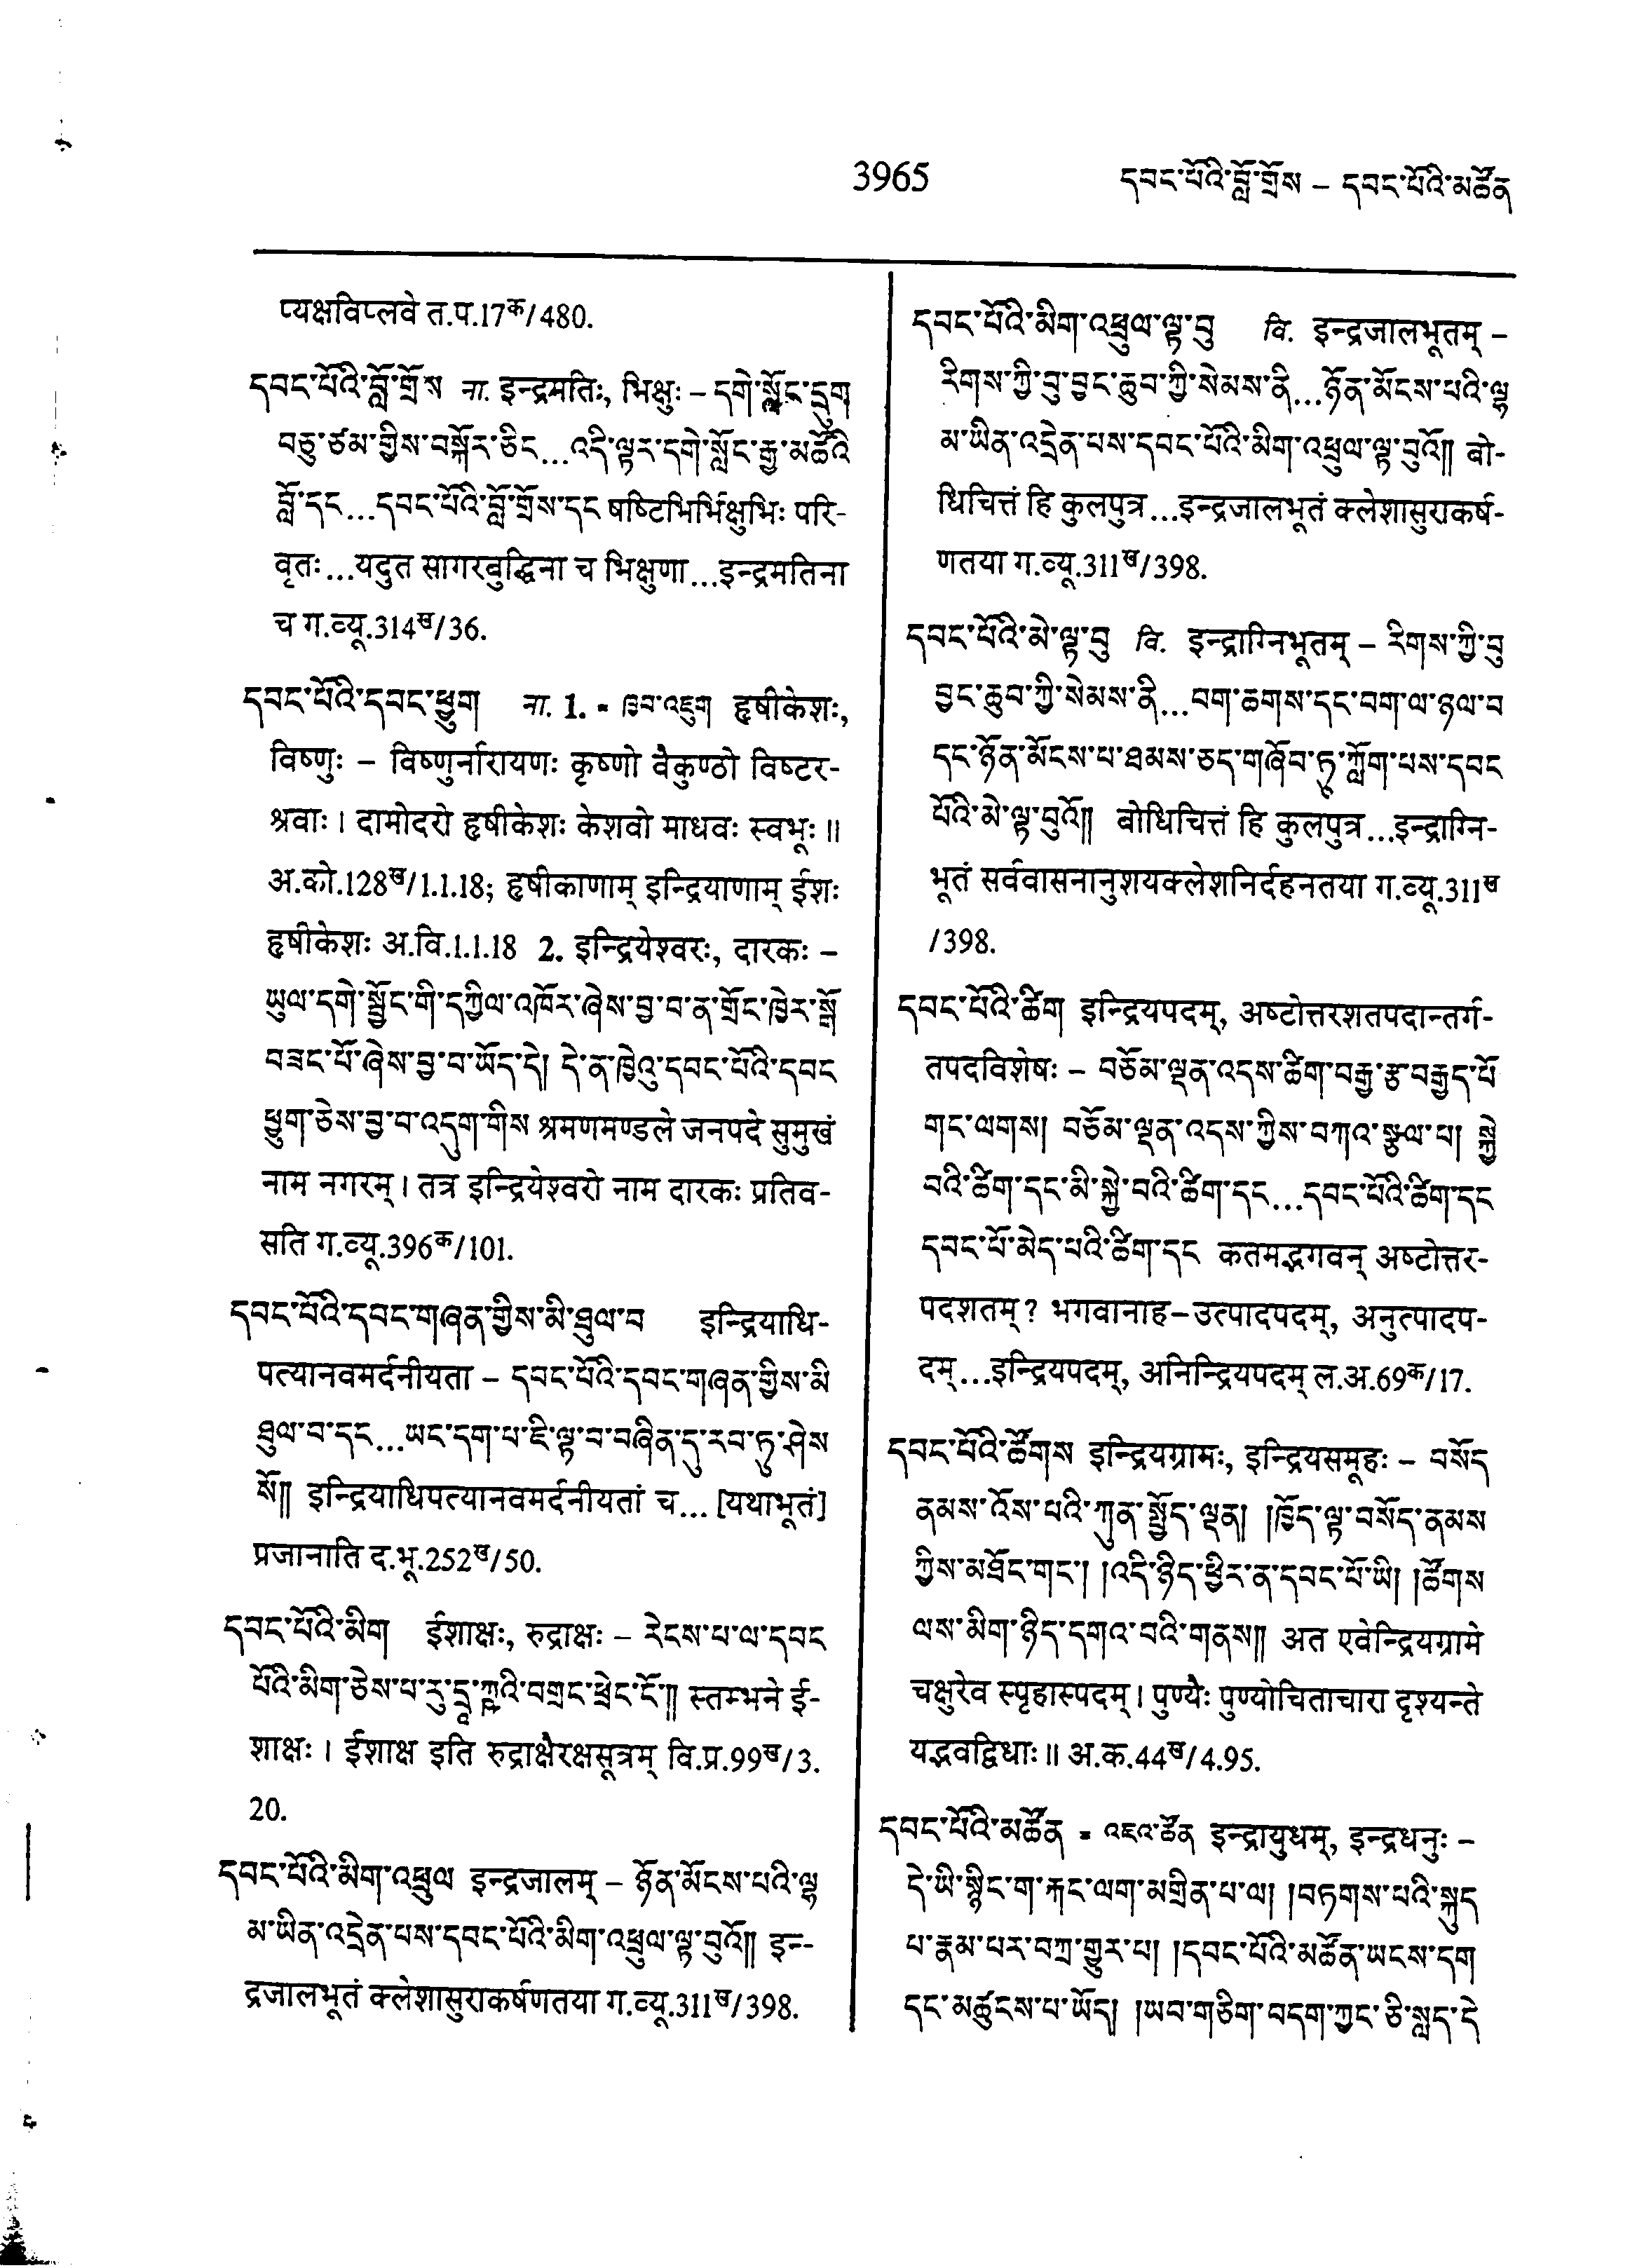 3965
དབང་པོའི་བློ་གྲོས – དབང་པོའི་མཚོན
प्यक्षविप्लवे त.प.17क/480.
དབང་པོའི་བློ་གྲོས ना. इन्द्रमतिः, भिक्षुः – དགེ་སློང་དྲུག
བཅུ་ཙམ་གྱིས་བསྐོར་ཅིང...འདི་ལྟར་དགེ་སློང་རྒྱ་མཚོའི
བློ་དང...དབང་པོའི་བློ་གྲོས་དང षष्टिभिर्भिक्षुभिः परि-
वृतः...यदुत सागरबुद्धिना च भिक्षुणा...इन्द्रमतिना
च ग.व्यू.314ख/36.
དབང་པོའི་དབང་ཕྱུག ना. 1. = ཁྱབ་འཇུག हृषीकेशः,
विष्णुः – विष्णुर्नारायणः कृष्णो वैकुण्ठो विष्टर-
श्रवाः । दामोदरो हृषीकेशः केशवो माधवः स्वभूः ॥
अ.को.128ख/1.1.18; हृषीकाणाम् इन्द्रियाणाम् ईशः
हृषीकेशः अ.वि.1.1.18 2. इन्द्रियेश्वरः, दारकः –
ཡུལ་དགེ་སྦྱོང་གི་དཀྱིལ་འཁོར་ཞེས་བྱ་བ་ན་གྲོང་ཁྱེར་སྒོ
བཟང་པོ་ཞེས་བྱ་བ་ཡོད་དེ། དེ་ན་ཁྱེའུ་དབང་པོའི་དབང
ཕྱུག་ཅེས་བྱ་བ་འདུག་གིས श्रमणमण्डले जनपदे सुमुखं
नाम नगरम् । तत्र इन्द्रियेश्वरो नाम दारकः प्रतिव-
सति ग.व्यू.396क/101.
དབང་པོའི་དབང་གཞན་གྱིས་མི་ཐུལ་བ इन्द्रियाधि-
पत्यानवमर्दनीयता – དབང་པོའི་དབང་གཞན་གྱིས་མི
ཐུལ་བ་དང...ཡང་དག་པ་ཇི་ལྟ་བ་བཞིན་དུ་རབ་ཏུ་ཤེས
སོ།། इन्द्रियाधिपत्यानवमर्दनीयतां च... [यथाभूतं]
प्रजानाति द.भू.252ख/50.
དབང་པོའི་མིག ईशाक्षः, रुद्राक्षः – རེངས་པ་ལ་དབང
པོའི་མིག་ཅེས་པ་རུ་དྲཱཀྵའི་བགྲང་ཕྲེང་ངོ་།། स्तम्भने ई-
शाक्षः । ईशाक्ष इति रुद्राक्षैरक्षसूत्रम् वि.प्र.99ख/3.
20.
དབང་པོའི་མིག་འཕྲུལ इन्द्रजालम् – ཉོན་མོངས་པའི་ལྷ
མ་ཡིན་འདྲེན་པས་དབང་པོའི་མིག་འཕྲུལ་ལྟ་བུའོ།། इन्-
द्रजालभूतं क्लेशासुराकर्षणतया ग.व्यू.311ख/398.
དབང་པོའི་མིག་འཕྲུལ་ལྟ་བུ वि. इन्द्रजालभूतम् –
རིགས་ཀྱི་བུ་བྱང་ཆུབ་ཀྱི་སེམས་ནི...ཉོན་མོངས་པའི་ལྷ
མ་ཡིན་འདྲེན་པས་དབང་པོའི་མིག་འཕྲུལ་ལྟ་བུའོ།། बो-
धिचित्तं हि कुलपुत्र...इन्द्रजालभूतं क्लेशासुराकर्ष-
णतया ग.व्यू.311ख/398.
དབང་པོའི་མེ་ལྟ་བུ वि. इन्द्राग्निभूतम् – རིགས་ཀྱི་བུ
བྱང་ཆུབ་ཀྱི་སེམས་ནི...བག་ཆགས་དང་བག་ལ་ཉལ་བ
དང་ཉོན་མོངས་པ་ཐམས་ཅད་གཞོབ་ཏུ་ཀློག་པས་དབང
པོའི་མེ་ལྟ་བུའོ།། बोधिचित्तं हि कुलपुत्र...इन्द्राग्नि-
भूतं सर्ववासनानुशयक्लेशनिर्दहनतया ग.व्यू.311ख
/398.
དབང་པོའི་ཚིག इन्द्रियपदम्, अष्टोत्तरशतपदान्तर्ग-
तपदविशेषः – བཅོམ་ལྡན་འདས་ཚིག་བརྒྱ་རྩ་བརྒྱད་པོ
གང་ལགས། བཅོམ་ལྡན་འདས་ཀྱིས་བཀའ་སྩལ་པ། སྐྱེ
བའི་ཚིག་དང་མི་སྐྱེ་བའི་ཚིག་དང...དབང་པོའི་ཚིག་དང
དབང་པོ་མེད་པའི་ཚིག་དང कतमद्भगवन् अष्टोत्तर-
पदशतम्? भगवानाह–उत्पादपदम्, अनुत्पादप-
दम्...इन्द्रियपदम्, अनिन्द्रियपदम् ल.अ.69क/17.
དབང་པོའི་ཚོགས इन्द्रियग्रामः, इन्द्रियसमूहः – བསོད
ནམས་འོས་པའི་ཀུན་སྤྱོད་ལྡན། །ཁྱོད་ལྟ་བསོད་ནམས
ཀྱིས་མཐོང་གང་། །འདི་ཉིད་ཕྱིར་ན་དབང་པོ་ཡི། །ཚོགས
ལས་མིག་ཉིད་དགའ་བའི་གནས།། अत एवेन्द्रियग्रामे
चक्षुरेव स्पृहास्पदम् । पुण्यैः पुण्योचिताचारा दृश्यन्ते
यद्भवद्विधाः ॥ अ.क.44ख/4.95.
དབང་པོའི་མཚོན = འཇའ་ཚོན इन्द्रायुधम्, इन्द्रधनुः –
དེ་ཡི་སྙིང་ག་རྐང་ལག་མགྲིན་པ་ལ། །བཏགས་པའི་སྐུད
པ་རྣམ་པར་བཀྲ་གྱུར་པ། །དབང་པོའི་མཚོན་ཡངས་དག
དང་མཚུངས་པ་ཡོད། །ཡབ་གཅིག་བདག་ཀྱང་ཅི་སླད་དེ